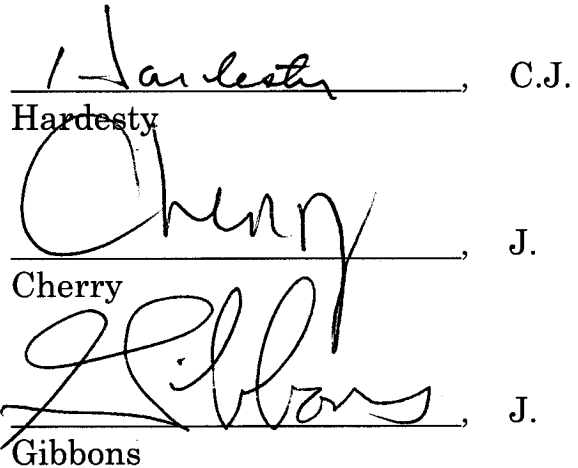 Hardesty, C.J.
Hardesty
Cherry, J.
Cherry
Gibbons, J.
Gibbons